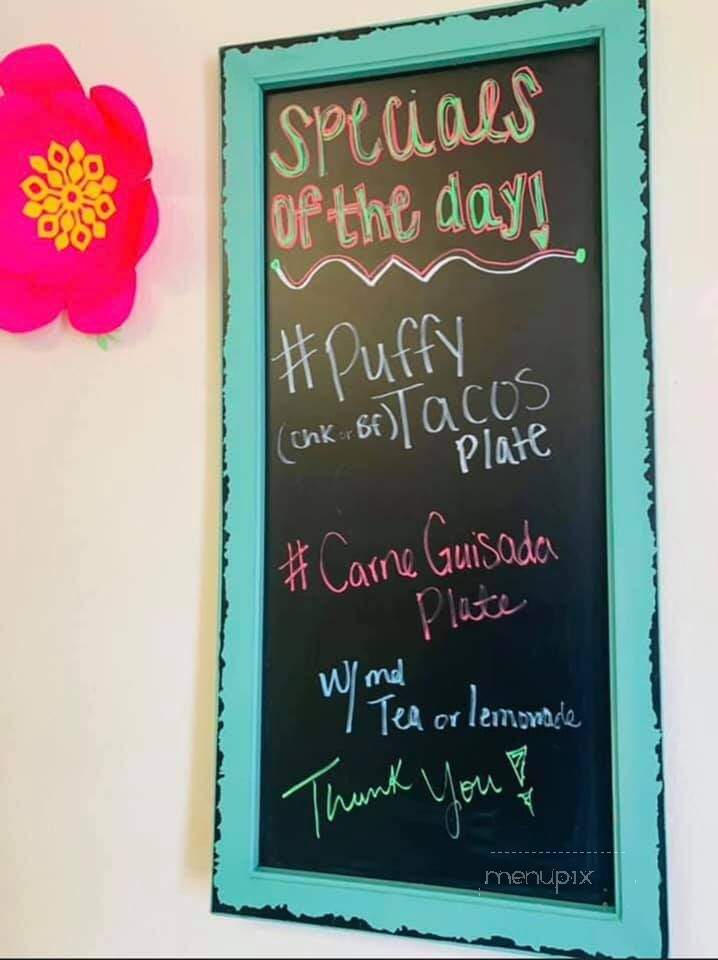 Specials
of the day!
#Puffy
(chk or Bf) Tacos
Plate
#Carne Guisada
Plate
W/ md
Tea or lemonade
Thank You!
menupix